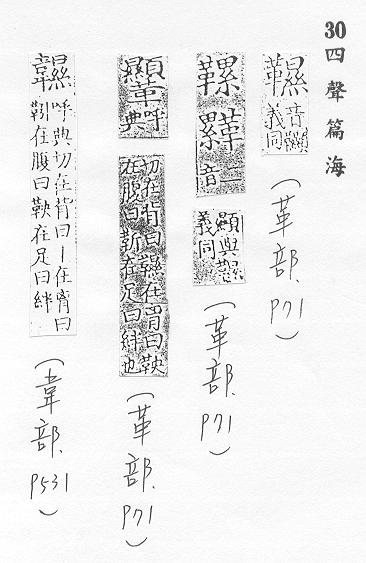 30 四聲篇海
音韅義同
(革部.P71)
二音
顯與韅義同
(革部.P71)
呼典
切在背曰韅在胷曰鞅
在腹曰靳在足曰絆也
(革部.P71)
呼典切在背曰丨在胷曰
靷在腹曰鞅在足曰絆
(韋部.P531)